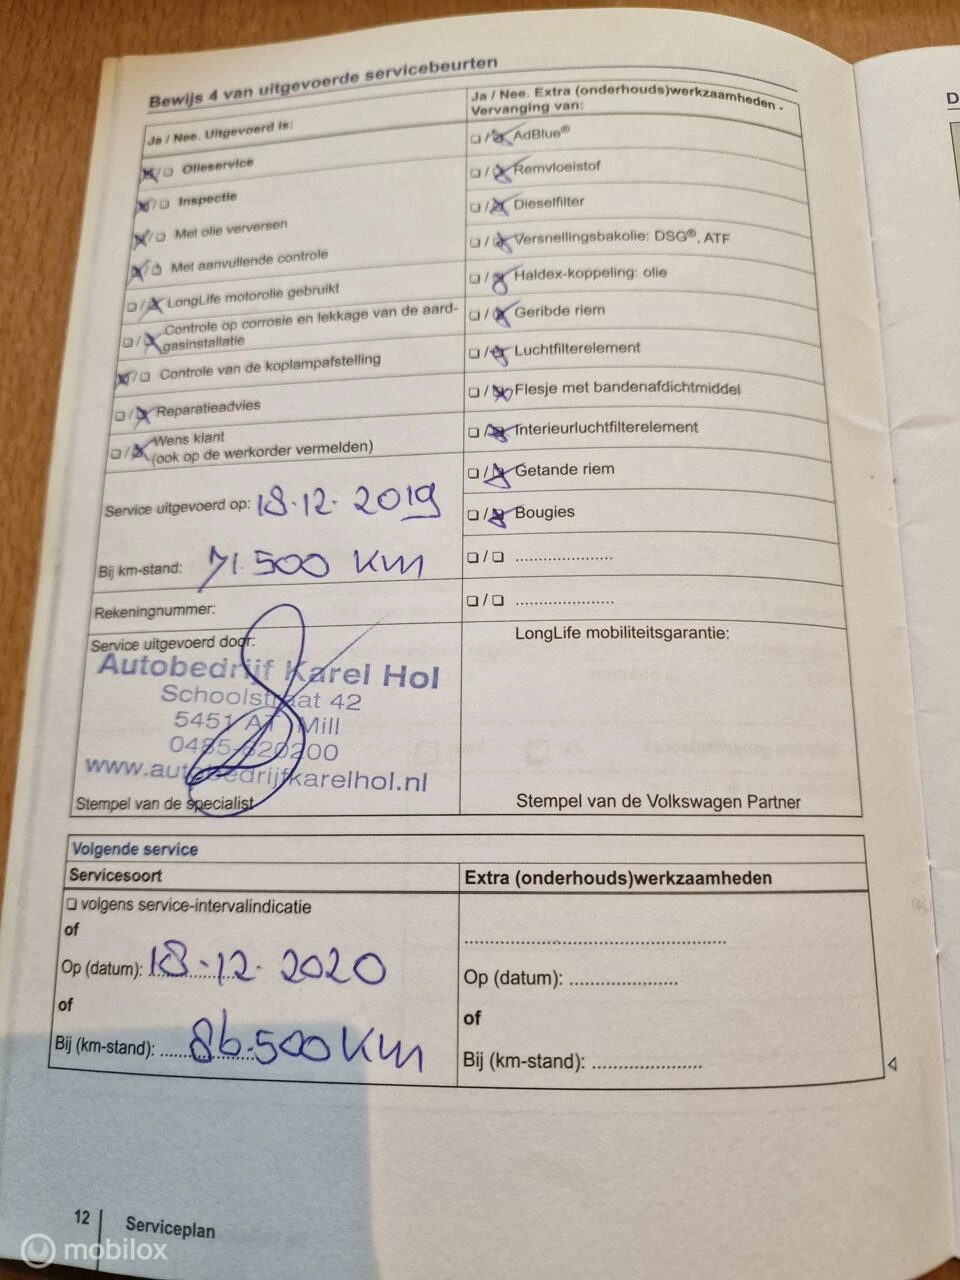 Bewijs 4 van uitgevoerde servicebeurten
Ja / Nee. Uitgevoerd is:
☒/☐ Olieservice
☒/☐ Inspectie
☒/☐ Met olie verversen
☒/☐ Met aanvullende controle
☐/☒ LongLife motorolie gebruikt
☐/☒ Controle op corrosie en lekkage van de aard-
gasinstallatie
☒/☐ Controle van de koplampafstelling
☐/☒ Reparatieadvies
☐/☒ Wens klant
(ook op de werkorder vermelden)
Service uitgevoerd op: 18.12.2019
Bij km-stand: 71.500 KM
Rekeningnummer:
Service uitgevoerd door:
Autobedrijf Karel Hol
Schoolstraat 42
5451 AT Mill
0485-620200
www.autobedrijfkarelhol.nl
Stempel van de specialist
Ja / Nee. Extra (onderhouds)werkzaamheden -
Vervanging van:
☐/☒ AdBlue®
☐/☒ Remvloeistof
☐/☒ Dieselfilter
☐/☒ Versnellingsbakolie: DSG®, ATF
☐/☒ Haldex-koppeling: olie
☐/☒ Geribde riem
☐/☒ Luchtfilterelement
☐/☒ Flesje met bandenafdichtmiddel
☐/☒ Interieurluchtfilterelement
☐/☒ Getande riem
☐/☒ Bougies
☐/☐ .....................
☐/☐ .....................
LongLife mobiliteitsgarantie:
Stempel van de Volkswagen Partner
Volgende service
Servicesoort
☐ volgens service-intervalindicatie
of
Op (datum): 18-12-2020
of
Bij (km-stand): 86.500 KM
Extra (onderhouds)werkzaamheden
.....................
Op (datum): .....................
of
Bij (km-stand): .....................
12 | Serviceplan
mobilox
D